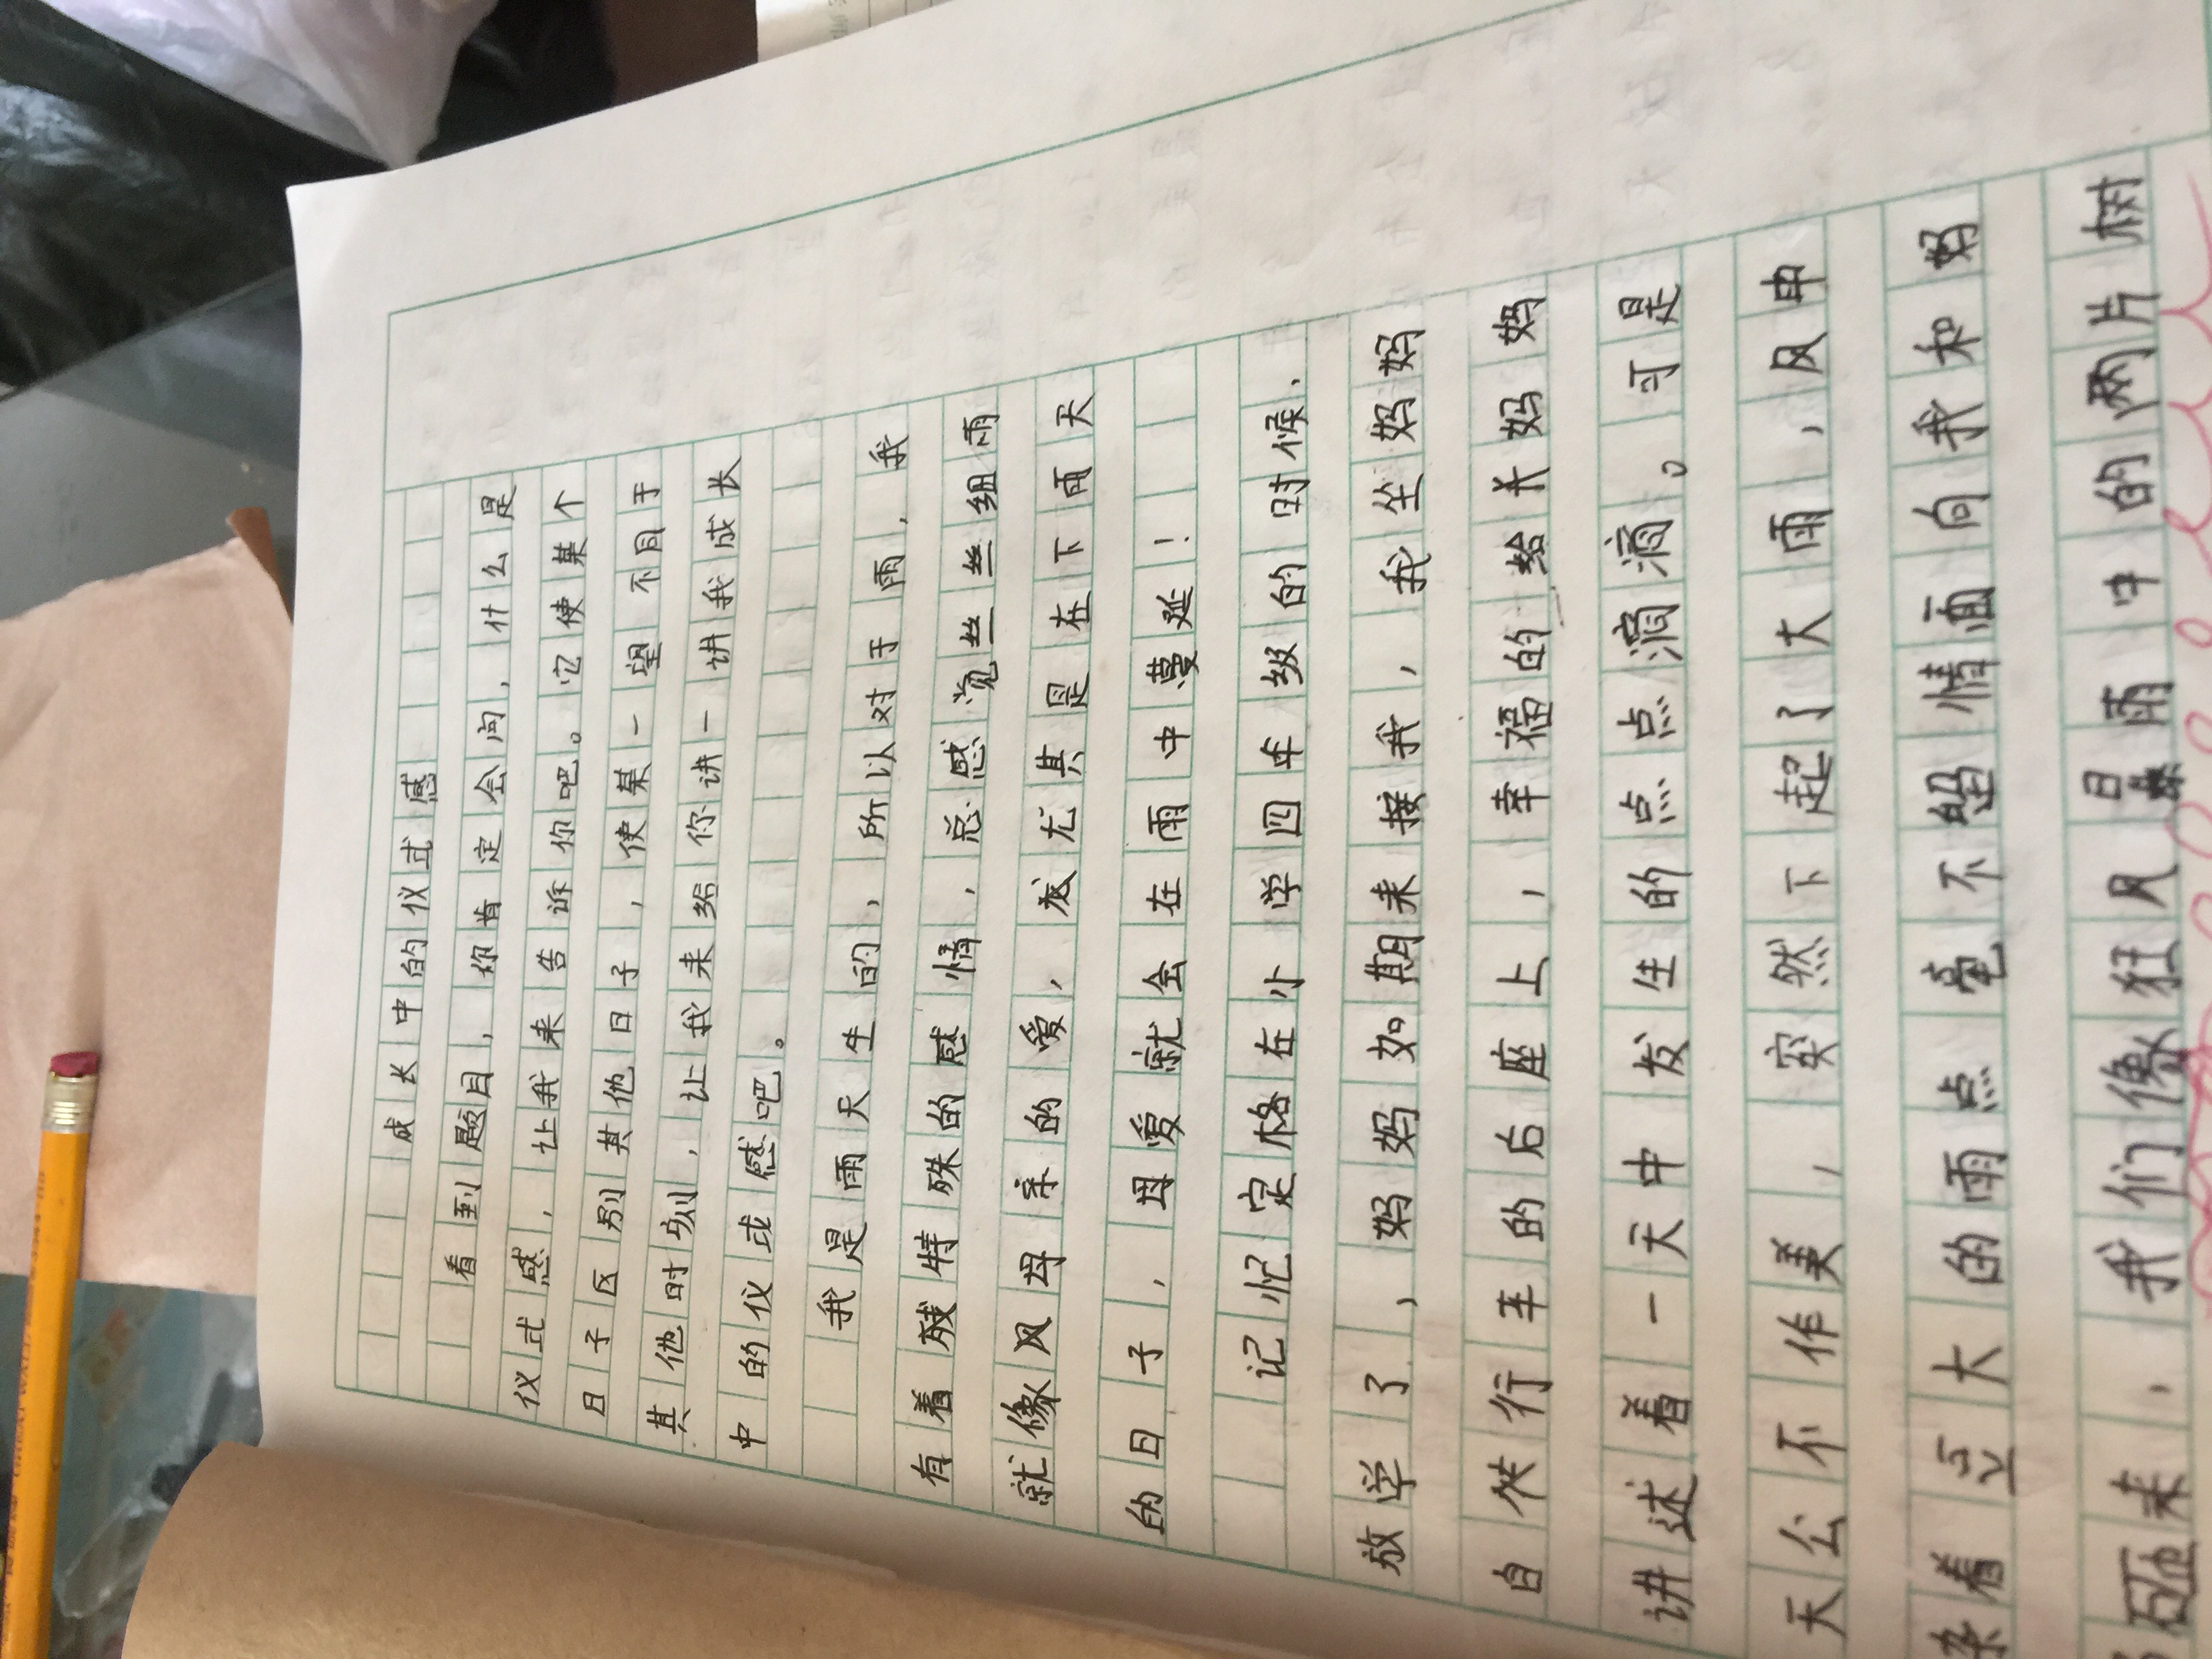 成长中的仪式感
看到题目，你肯定会问，什么是
仪式感，让我来告诉你吧。它使某个
日子区别其他日子，使某一望不同于
其他时刻，让我来给你讲一讲我成长
中的仪式感吧。
我是雨天生的，所以对于雨，我
有着特殊的感情，总感觉丝丝细雨
就像风母亲的爱，尤其是在下雨天
的日子，母爱就会在雨中蔓延！
记忆定格在小学四年级的时候，
放学了，妈妈如期来接我，我坐妈妈
自行车的后座上，幸福的给关妈妈
讲述着一天中发生的点点滴滴。可是
天公不作美，突然下起了大雨，风中
夹着豆大的雨点毫不留情面向我和妈
妈砸来，我们像狂风暴雨中的两片树